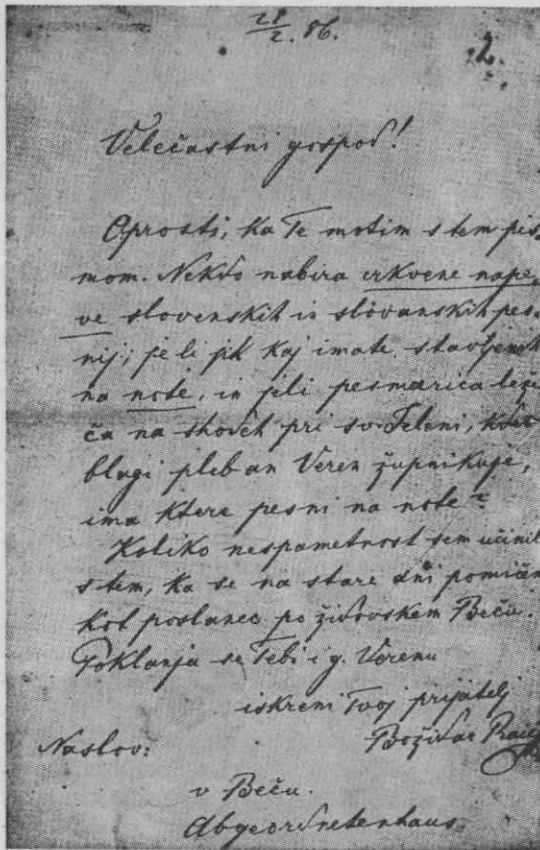 28/2. 86.
2.
Velečastni gospod!
Oprosti, ka Te motim s tem pis-
mom. Nekdo nabira crkvene nape-
ve slovenskih in slovanskih pes-
nij; je li jih kaj imate stavljenih
na note, in jeli pesmarica leže-
ča na shodeh pri sv. Heleni, kder
blagi pleban Veren župnikuje,
ima ktere pesni na note?
Koliko nespametnost sem učinil
s tem, ka se na stare dni pomičem
kot poslanec po židovskem Beču.
Poklanja se Tebi i g. Verenu
iskreni Tvoj prijatelj
Božidar Raič
Naslov:
v Beču.
Abgeordnetenhaus.